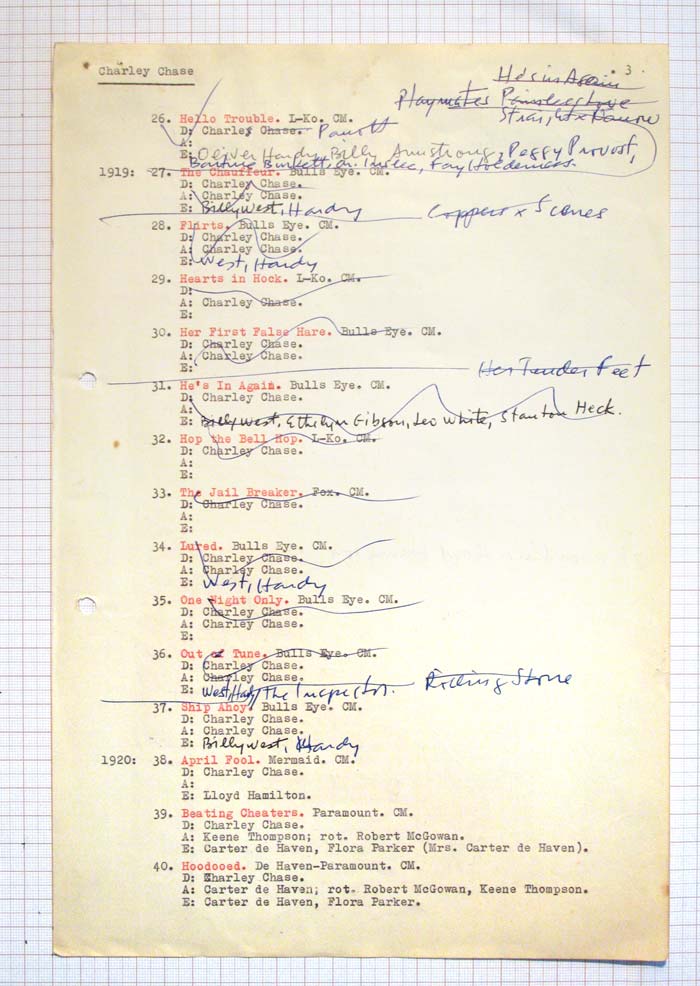 Charley Chase
3.
He's in Again
Playmates Painless Love
Straight x Narrow
26. Hello Trouble. L-Ko. CM.
D: Charley Chase. Parrott
A:
E: Oliver Hardy, Billy Armstrong, Peggy Prevost,
Bartine Burkett,
1919: 27. The Chauffeur. Bulls Eye. CM.
D: Charley Chase.
A: Charley Chase.
E: Billy West, Hardy
Coppers x Scenes
28. Flirts. Bulls Eye. CM.
D: Charley Chase.
A: Charley Chase.
E: West, Hardy
29. Hearts in Hock. L-Ko. CM.
D:
A: Charley Chase.
E:
30. Her First False Hare. Bulls Eye. CM.
D: Charley Chase.
A: Charley Chase.
E:
Her Tender Feet
31. He's In Again. Bulls Eye. CM.
D: Charley Chase.
A:
E: Billy West, Ethelyn Gibson, Leo White, Stanton Heck.
32. Hop the Bell Hop. L-Ko. CM.
D: Charley Chase.
A:
E:
33. The Jail Breaker. Fox. CM.
D: Charley Chase.
A:
E:
34. Lured. Bulls Eye. CM.
D: Charley Chase.
A: Charley Chase.
E: West, Hardy
35. One Night Only. Bulls Eye. CM.
D: Charley Chase.
A: Charley Chase.
E:
36. Out of Tune. Bulls Eye. CM.
D: Charley Chase.
A: Charley Chase.
E: West, Hardy The Inspector. Rolling Stone
37. Ship Ahoy. Bulls Eye. CM.
D: Charley Chase.
A: Charley Chase.
E: Billy West, Hardy
1920: 38. April Fool. Mermaid. CM.
D: Charley Chase.
A:
E: Lloyd Hamilton.
39. Beating Cheaters. Paramount. CM.
D: Charley Chase.
A: Keene Thompson; rot. Robert McGowan.
E: Carter de Haven, Flora Parker (Mrs. Carter de Haven).
40. Hoodooed. De Haven-Paramount. CM.
D: Charley Chase.
A: Carter de Haven; rot. Robert McGowan, Keene Thompson.
E: Carter de Haven, Flora Parker.